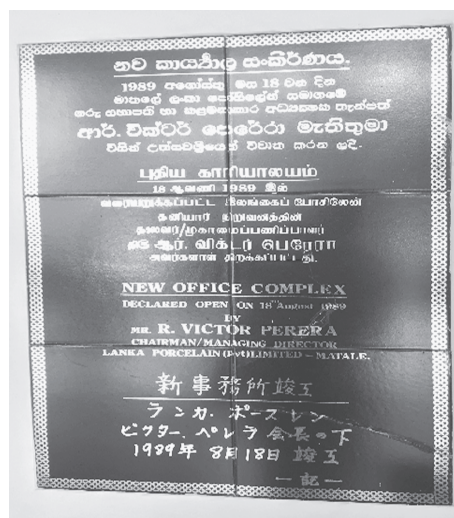 නව කාර්‍යාල සංකීර්ණය.
1989 අගෝස්තු මස 18 වන දින
මාතලේ ලංකා පෝසිලේන් සමාගමේ
ගරු සභාපති හා කළමනාකාර අධ්‍යක්ෂක තැන්පත්
ආර්. වික්ටර් පෙරේරා මැතිතුමා
විසින් උත්සවශ්‍රීයෙන් විවෘත කරන ලදි.
புதிய காரியாலயம்
18 ஆவணி 1989 இல்
வரையறுக்கப்பட்ட இலங்கைப் போசிலேன்
தனியார் நிறுவனத்தின்
தலைவர்/முகாமைப்பணிப்பாளர்
திரு ஆர். விக்டர் பெரேரா
அவர்களால் திறக்கப்பட்டது.
NEW OFFICE COMPLEX
DECLARED OPEN ON 18th August 1989
BY
MR. R. VICTOR PERERA
CHAIRMAN/MANAGING DIRECTOR
LANKA PORCELAIN (PVT) LIMITED – MATALE.
新事務所竣工
ランカ. ポースレン
ビクター. ペレラ 会長の下
1989年 8月18日 竣工
―記―